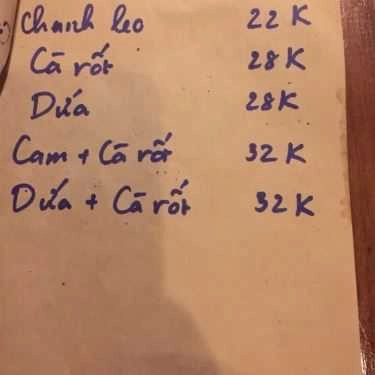 Chanh leo 22K
Cà rốt 28K
Dứa 28K
Cam + Cà rốt 32K
Dứa + Cà rốt 32K